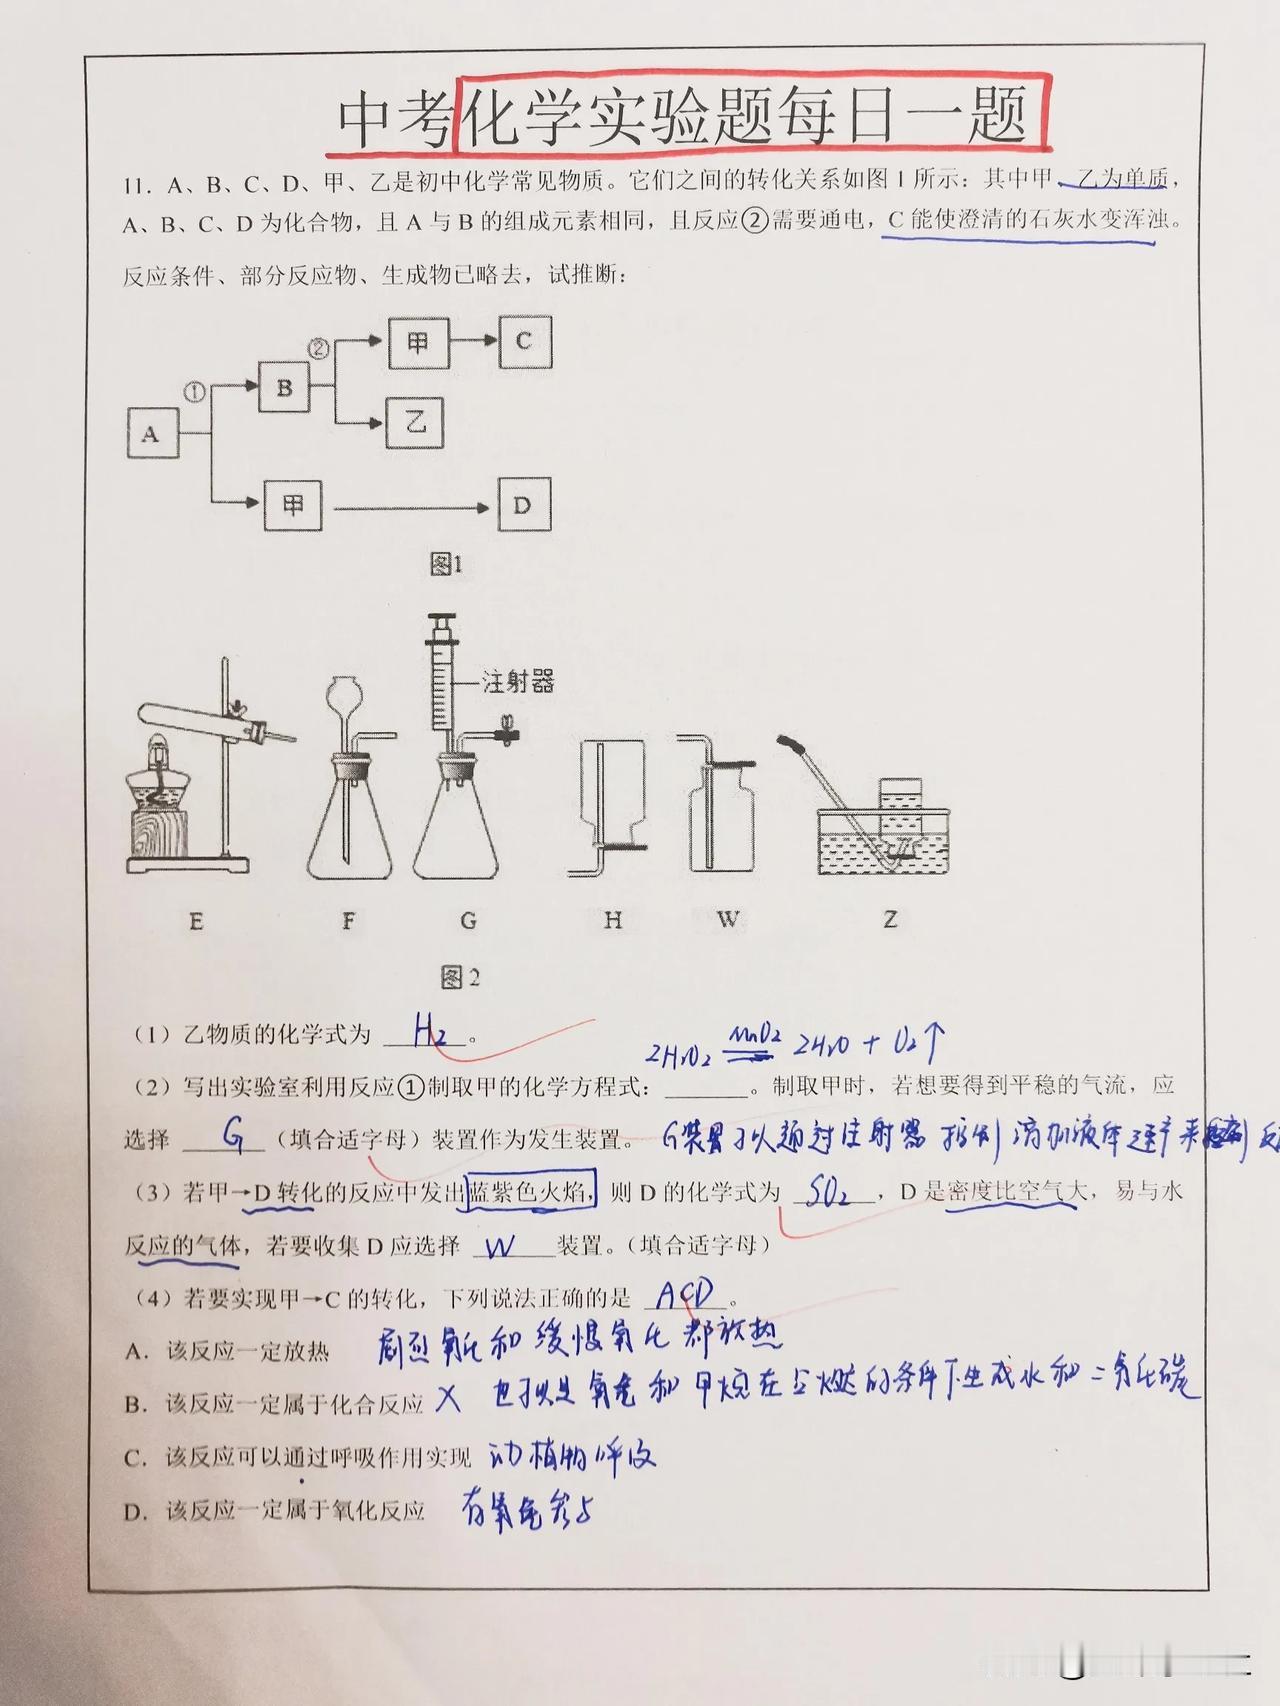 中考化学实验题每日一题
11. A、B、C、D、甲、乙是初中化学常见物质。它们之间的转化关系如图1所示：其中甲、乙为单质，
A、B、C、D 为化合物，且 A 与 B 的组成元素相同，且反应②需要通电，C 能使澄清的石灰水变浑浊。
反应条件、部分反应物、生成物已略去，试推断：
② 甲 C
① B
A 乙
甲 D
图1
注射器
E F G H W Z
图2
（1）乙物质的化学式为 H₂。
2H₂O₂ MnO₂ 2H₂O + O₂↑
（2）写出实验室利用反应①制取甲的化学方程式：______。制取甲时，若想要得到平稳的气流，应
选择 G （填合适字母）装置作为发生装置。 G装置可以通过注射器控制滴加液体速率来控制反
（3）若甲→D 转化的反应中发出蓝紫色火焰，则 D 的化学式为 SO₂，D 是密度比空气大，易与水
反应的气体，若要收集 D 应选择 W 装置。（填合适字母）
（4）若要实现甲→C 的转化，下列说法正确的是 ACD。
A. 该反应一定放热 剧烈氧化和缓慢氧化都放热
B. 该反应一定属于化合反应 × 也可以是氧气和甲烷在点燃的条件下生成水和二氧化碳
C. 该反应可以通过呼吸作用实现 动植物呼吸
D. 该反应一定属于氧化反应 有氧气参与